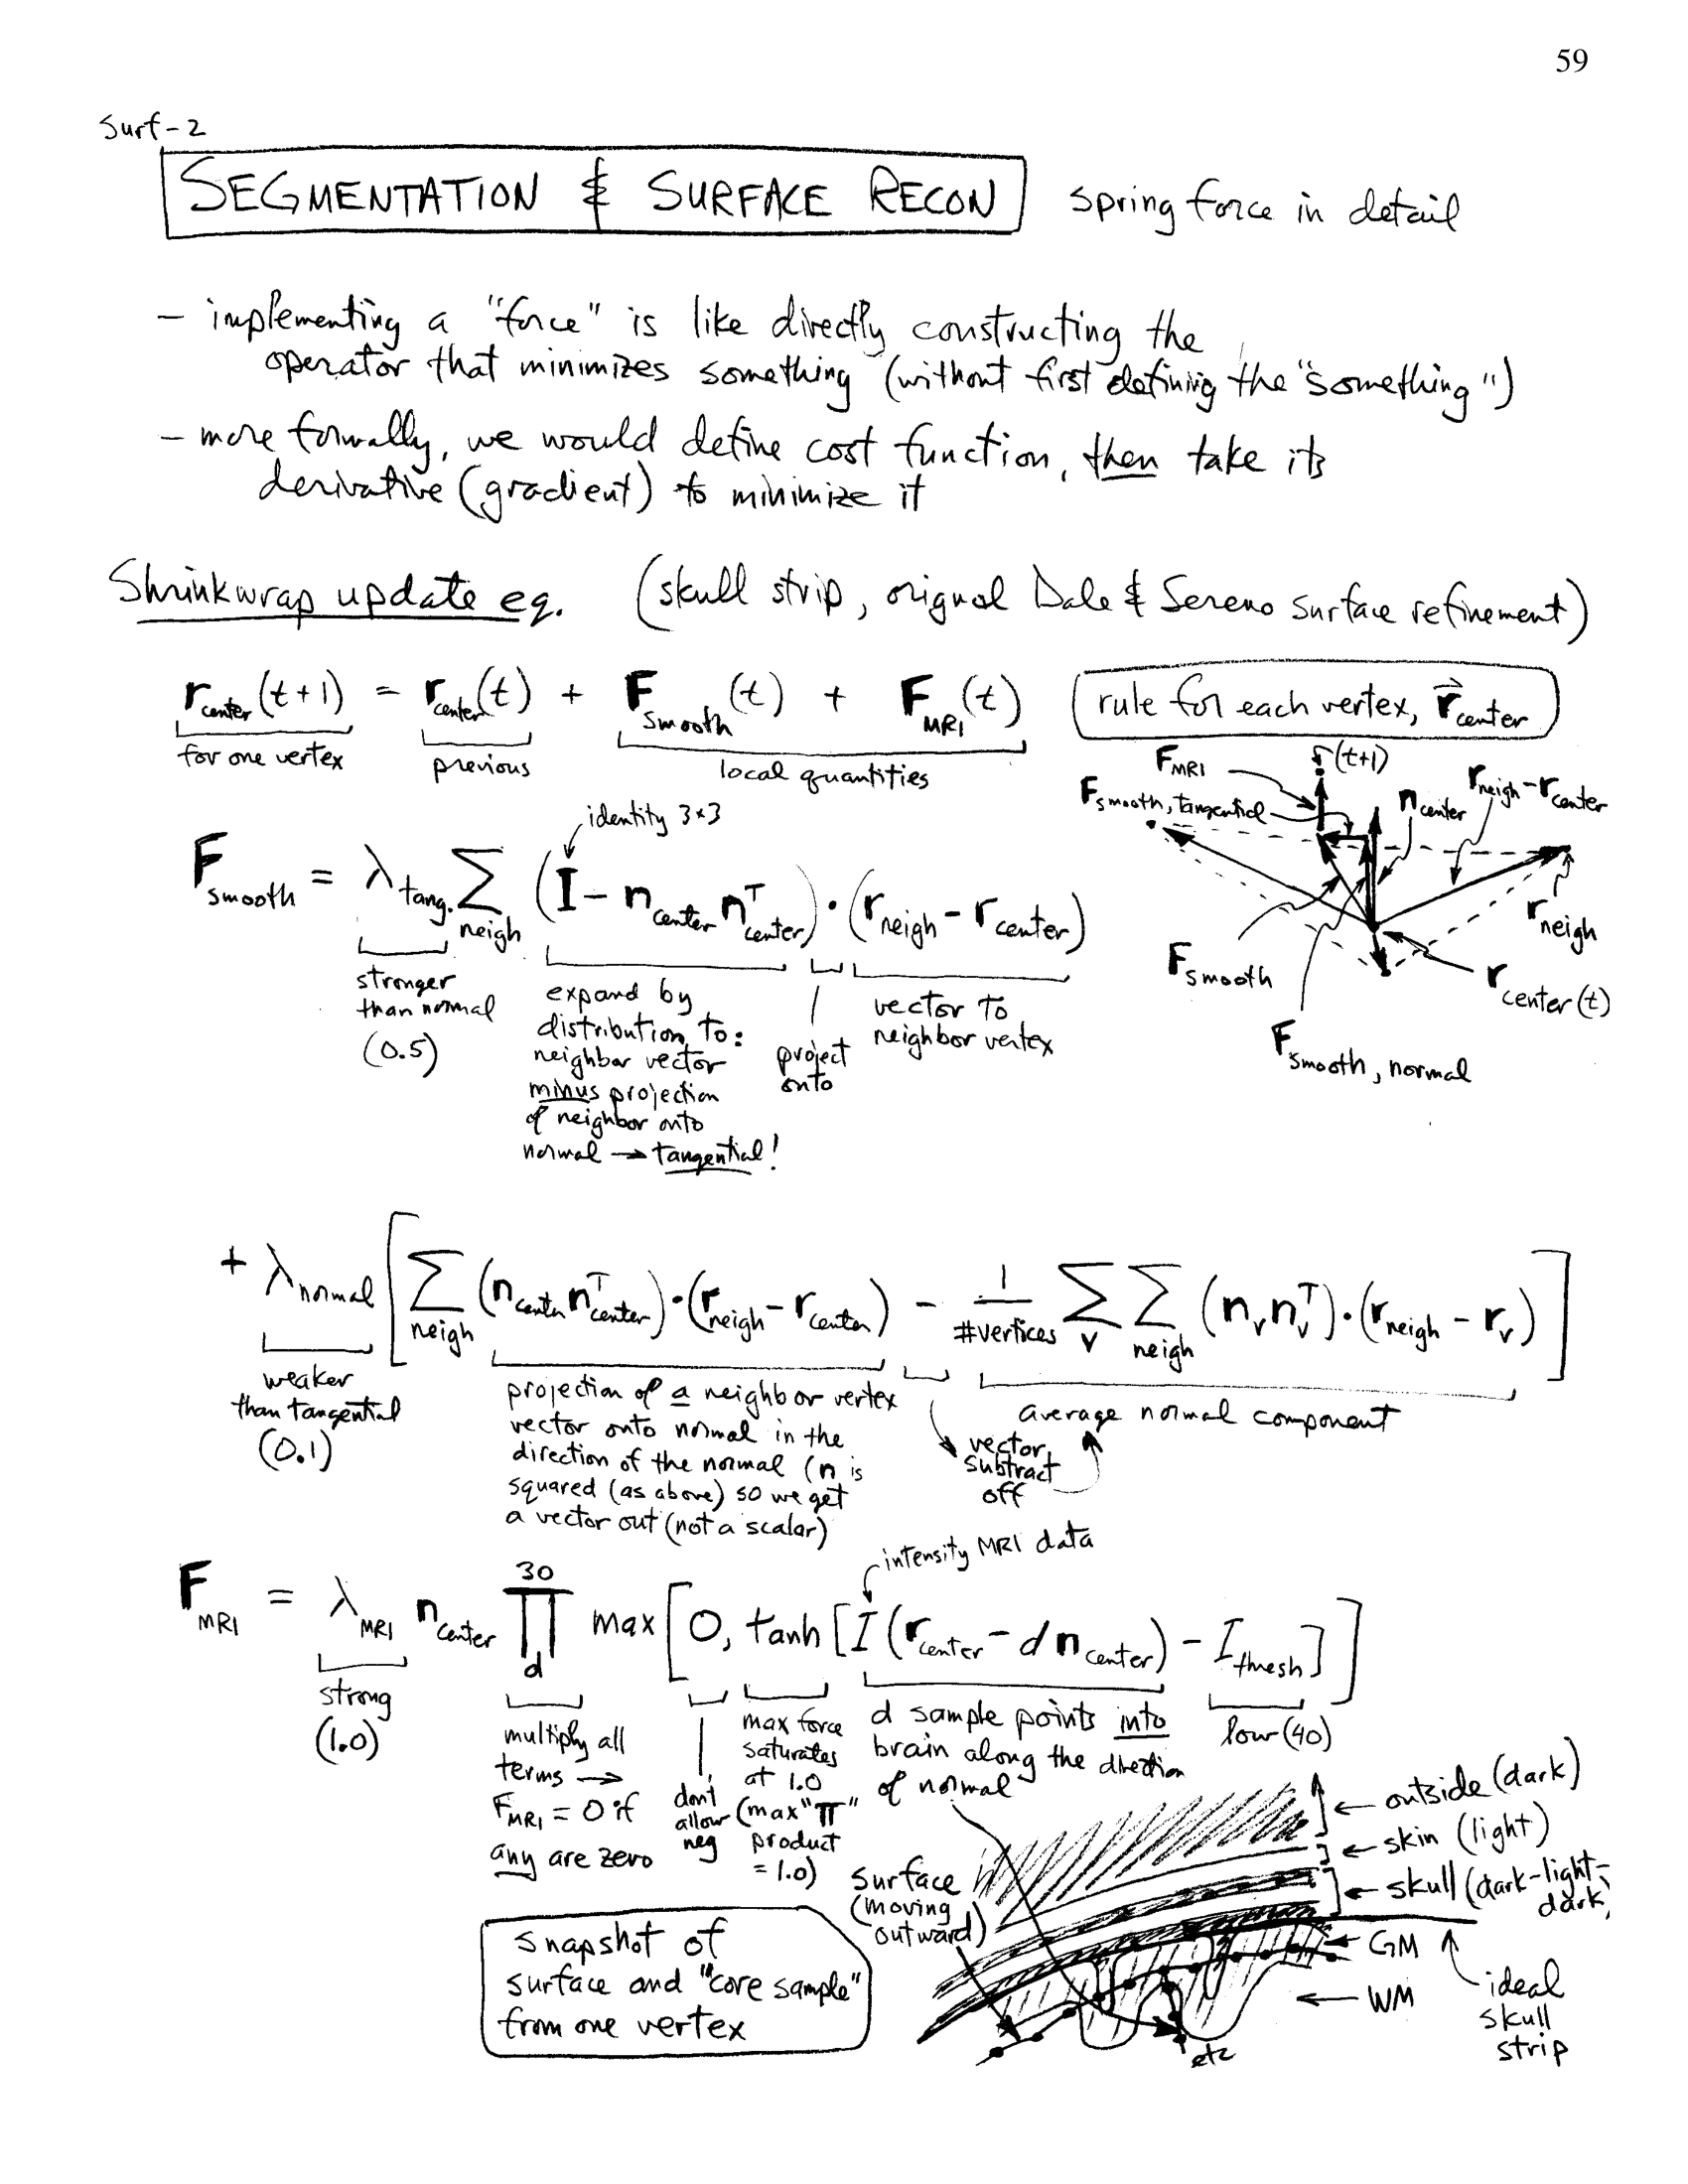 59
Surf-2
SEGMENTATION & SURFACE RECON
spring force in detail
– implementing a "force" is like directly constructing the
operator that minimizes something (without first defining the "something")
– more formally, we would define cost function, then take its
derivative (gradient) to minimize it
Shrinkwrap update eq. (skull strip, orignal Dale & Sereno surface refinement)
r_center(t+1) = r_center(t) + F_smooth(t) + F_MRI(t)
for one vertex
previous
local quantities
rule for each vertex, r⃗_center
F_smooth = λ_tang. Σ_neigh (I – n_center n_center^T) • (r_neigh – r_center)
identity 3×3
stronger
than normal
(0.5)
expand by
distribution to:
neighbor vector
minus projection
of neighbor onto
normal → tangential!
project
onto
vector to
neighbor vertex
F_MRI
r(t+1)
F_smooth, tangential
n_center
r_neigh – r_center
r_neigh
F_smooth
r_center(t)
F_smooth, normal
+ λ_normal [ Σ_neigh (n_center n_center^T) • (r_neigh – r_center) – 1/#vertices Σ_v Σ_neigh (n_v n_v^T) • (r_neigh – r_v) ]
weaker
than tangential
(0.1)
projection of a neighbor vertex
vector onto normal in the
direction of the normal (n is
squared (as above) so we get
a vector out (not a scalar)
vector
subtract
off
average normal component
F_MRI = λ_MRI n_center ∏_d^30 max [ 0, tanh [ I (r_center – d n_center) – I_thresh ] ]
intensity MRI data
strong
(1.0)
multiply all
terms →
F_MRI = 0 if
any are zero
don't
allow
neg
max force
saturates
at 1.0
(max "π"
product
= 1.0)
d sample points into
brain along the direction
of normal
low (40)
outside (dark)
skin (light)
skull (dark-light-
dark)
GM
WM
ideal
skull
strip
surface
(moving
outward)
etc
snapshot of
surface and "core sample"
from one vertex